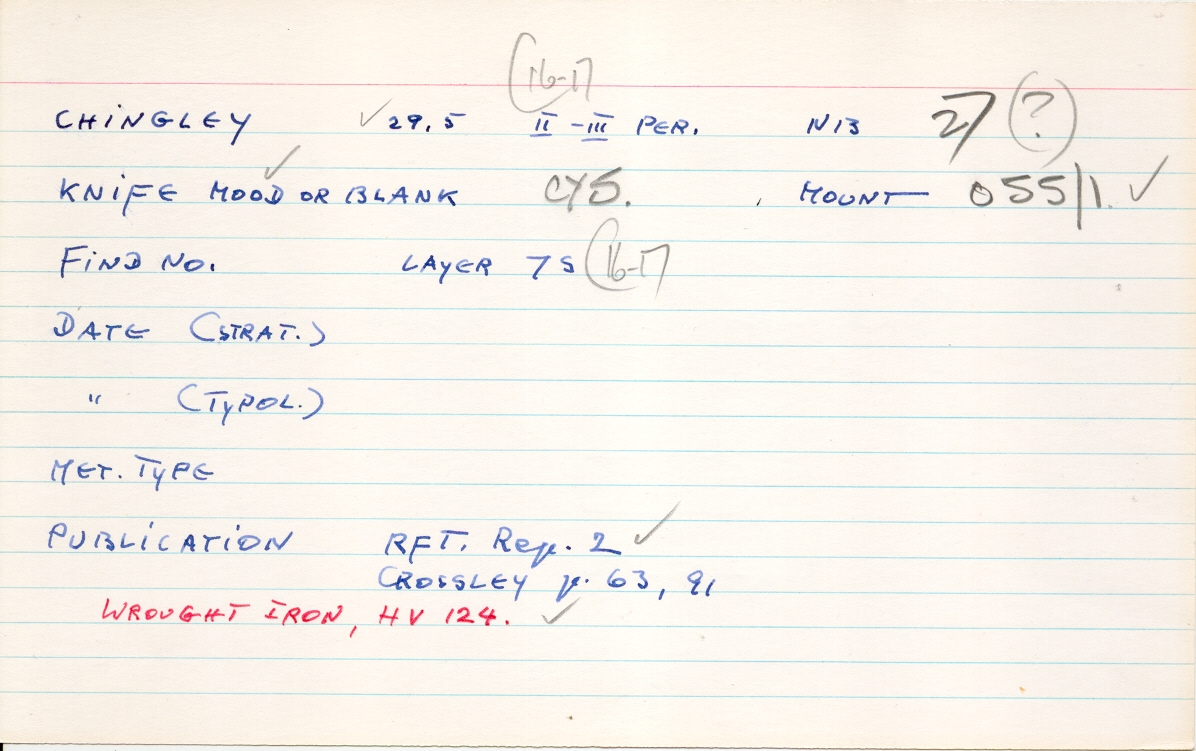 (16-17
CHINGLEY ✓ 29.5 II-III PER. N13 27 (?)
KNIFE MOOD OR BLANK CY5. , MOUNT 055/1. ✓
FIND NO. LAYER 7S (16-17
DATE (STRAT.)
" (TYPOL.)
MET. TYPE
PUBLICATION RFT. Rep. 2 ✓
CROSSLEY p. 63, 91
WROUGHT IRON, HV 124. ✓